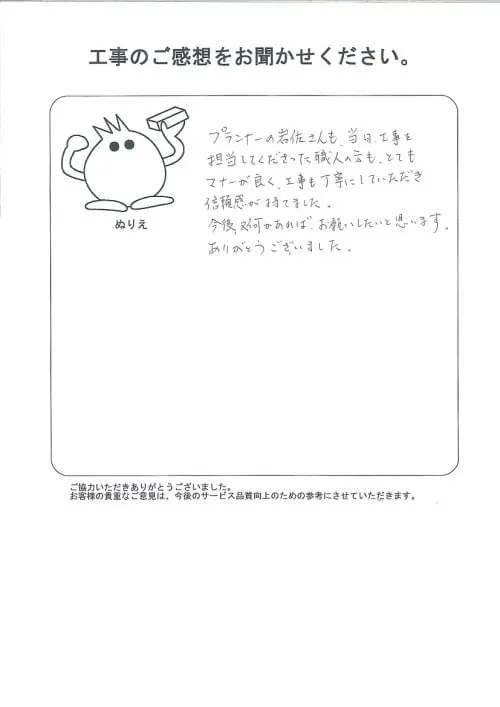 工事のご感想をお聞かせください。
プランナーの岩佐さんも、当日、工事を
担当してくださった職人の方も、とても
マナーが良く、工事も丁寧にしていただき
信頼感が持てました。
今後、又何かあれば、お願いしたいと思います。
ありがとうございました。
ぬりえ
ご協力いただきありがとうございました。
お客様の貴重なご意見は、今後のサービス品質向上のための参考にさせていただきます。